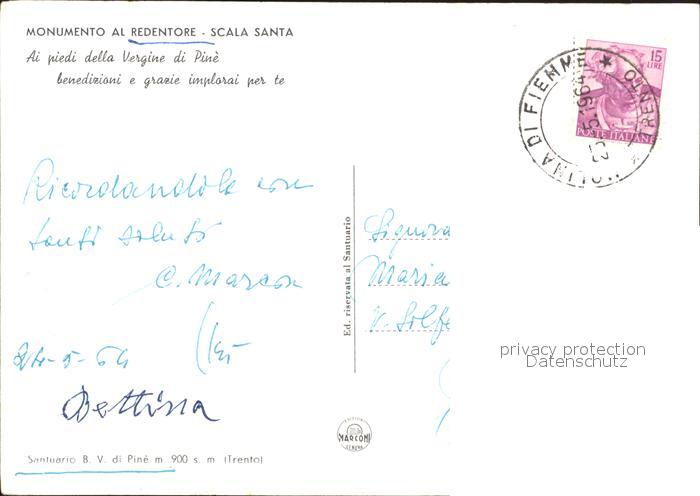 MONUMENTO AL REDENTORE - SCALA SANTA
Ai piedi della Vergine di Pinè
benedizioni e grazie implorai per te
15
LIRE
POSTE ITALIANE
MOLINA DI FIEMME
★ TRENTO ★
5.1964
Ricordandola con
tanti saluti
C. Marcon
5-64
Bettina
Ed. riservata al Santuario
Signora
Maria
V. Solfe
privacy protection
Datenschutz
MARCONI
GENOVA
Santuario B. V. di Pinè m. 900 s. m (Trento)